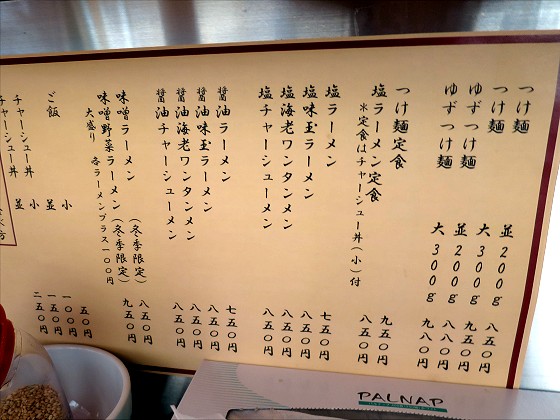 つけ麺 並200g 八五〇円
つけ麺 大300g 九五〇円
ゆずつけ麺 並200g 八八〇円
ゆずつけ麺 大300g 九八〇円
つけ麺定食 九五〇円
塩ラーメン定食 八五〇円
*定食はチャーシュー丼(小)付
塩ラーメン 七五〇円
塩味玉ラーメン 八五〇円
塩海老ワンタンメン 八五〇円
塩チャーシューメン 八五〇円
醤油ラーメン 七五〇円
醤油味玉ラーメン 八五〇円
醤油海老ワンタンメン 八五〇円
醤油チャーシューメン 八五〇円
味噌ラーメン(冬季限定) 八五〇円
味噌野菜ラーメン(冬季限定) 九五〇円
大盛り 各ラーメンプラス一〇〇円
ご飯 小 五〇円
並 一〇〇円
チャーシュー丼 小 一五〇円
チャーシュー丼 並 二五〇円
PALNAP